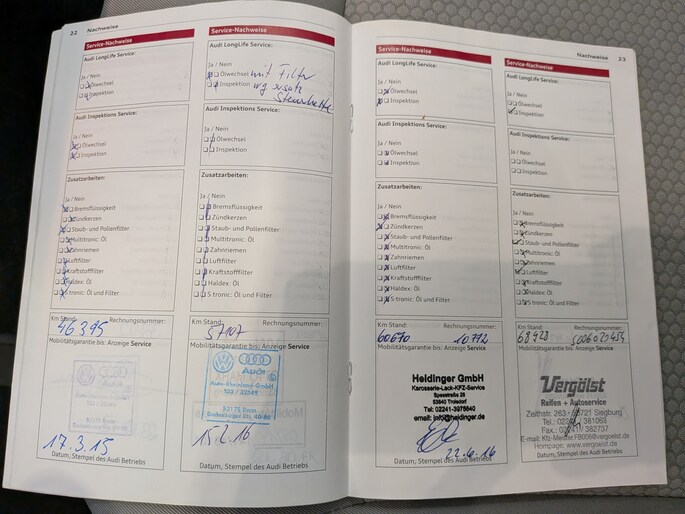 22 Nachweise
Service-Nachweise
Audi LongLife Service:
Ja / Nein
Ölwechsel
Inspektion
Audi Inspektions Service:
Ja / Nein
Ölwechsel
Inspektion
Zusatzarbeiten:
Ja / Nein
Bremsflüssigkeit
Zündkerzen
Staub- und Pollenfilter
Multitronic: Öl
Zahnriemen
Luftfilter
Kraftstofffilter
Haldex: Öl
S tronic: Öl und Filter
Km Stand: Rechnungsnummer:
46395
Mobilitätsgarantie bis: Anzeige Service
Audi
17.3.15
Datum, Stempel des Audi Betriebs
Service-Nachweise
Audi LongLife Service:
Ja / Nein
Ölwechsel mit Filter
Inspektion
Audi Inspektions Service:
Ja / Nein
Ölwechsel
Inspektion
Zusatzarbeiten:
Ja / Nein
Bremsflüssigkeit
Zündkerzen
Staub- und Pollenfilter
Multitronic: Öl
Zahnriemen
Luftfilter
Kraftstofffilter
Haldex: Öl
S tronic: Öl und Filter
Km Stand: Rechnungsnummer:
57107
Mobilitätsgarantie bis: Anzeige Service
Audi
53175 Bonn
Datum, Stempel des Audi Betriebs
Service-Nachweise
Audi LongLife Service:
Ja / Nein
Ölwechsel
Inspektion
Audi Inspektions Service:
Ja / Nein
Ölwechsel
Inspektion
Zusatzarbeiten:
Ja / Nein
Bremsflüssigkeit
Zündkerzen
Staub- und Pollenfilter
Multitronic: Öl
Zahnriemen
Luftfilter
Kraftstofffilter
Haldex: Öl
S tronic: Öl und Filter
Km Stand: Rechnungsnummer:
60670 10772
Mobilitätsgarantie bis: Anzeige Service
Heidinger GmbH
Karosserie-Lack-KFZ-Service
53840 Troisdorf
Tel: 02241-3975640
email: info@heidinger.de
22.6.16
Datum, Stempel des Audi Betriebs
Nachweise 23
Service-Nachweise
Audi LongLife Service:
Ja / Nein
Ölwechsel
Inspektion
Audi Inspektions Service:
Ja / Nein
Ölwechsel
Inspektion
Zusatzarbeiten:
Ja / Nein
Bremsflüssigkeit
Zündkerzen
Staub- und Pollenfilter
Multitronic: Öl
Zahnriemen
Luftfilter
Kraftstofffilter
Haldex: Öl
S tronic: Öl und Filter
Km Stand: Rechnungsnummer:
68428
Mobilitätsgarantie bis: Anzeige Service
Vergölst
Reifen + Autoservice
Zeithstr. Siegburg
Homepage: www.vergoelst.de
Datum, Stempel des Audi Betriebs